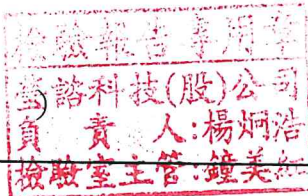 檢驗報告專用章
諮科技(股)公司
負責人:楊炯浩
檢驗室主管:鐘美